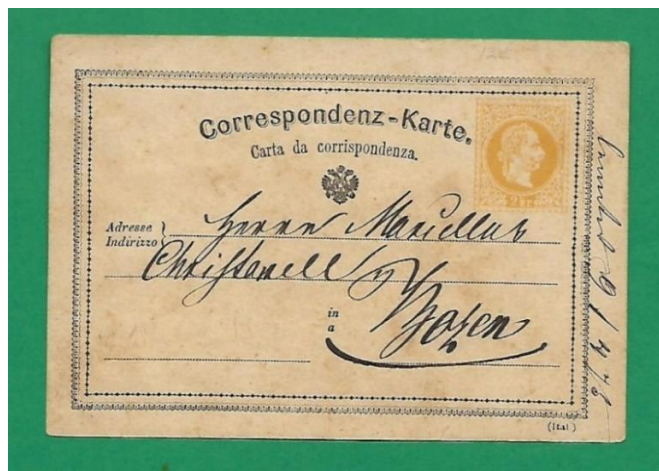 Correspondenz-Karte.
Carta da corrispondenza.
2 Kr
Adresse
Indirizzo
Herrn Marcellus
Christanell
in
a
Bozen
(Ital.)